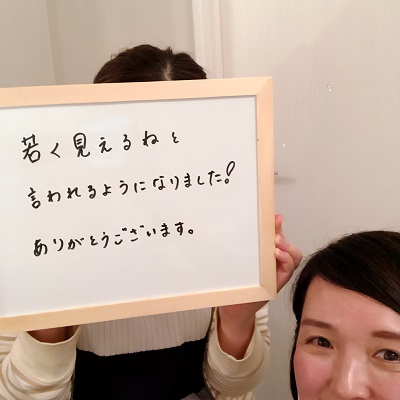 若く見えるねと
言われるようになりました!
ありがとうございます。